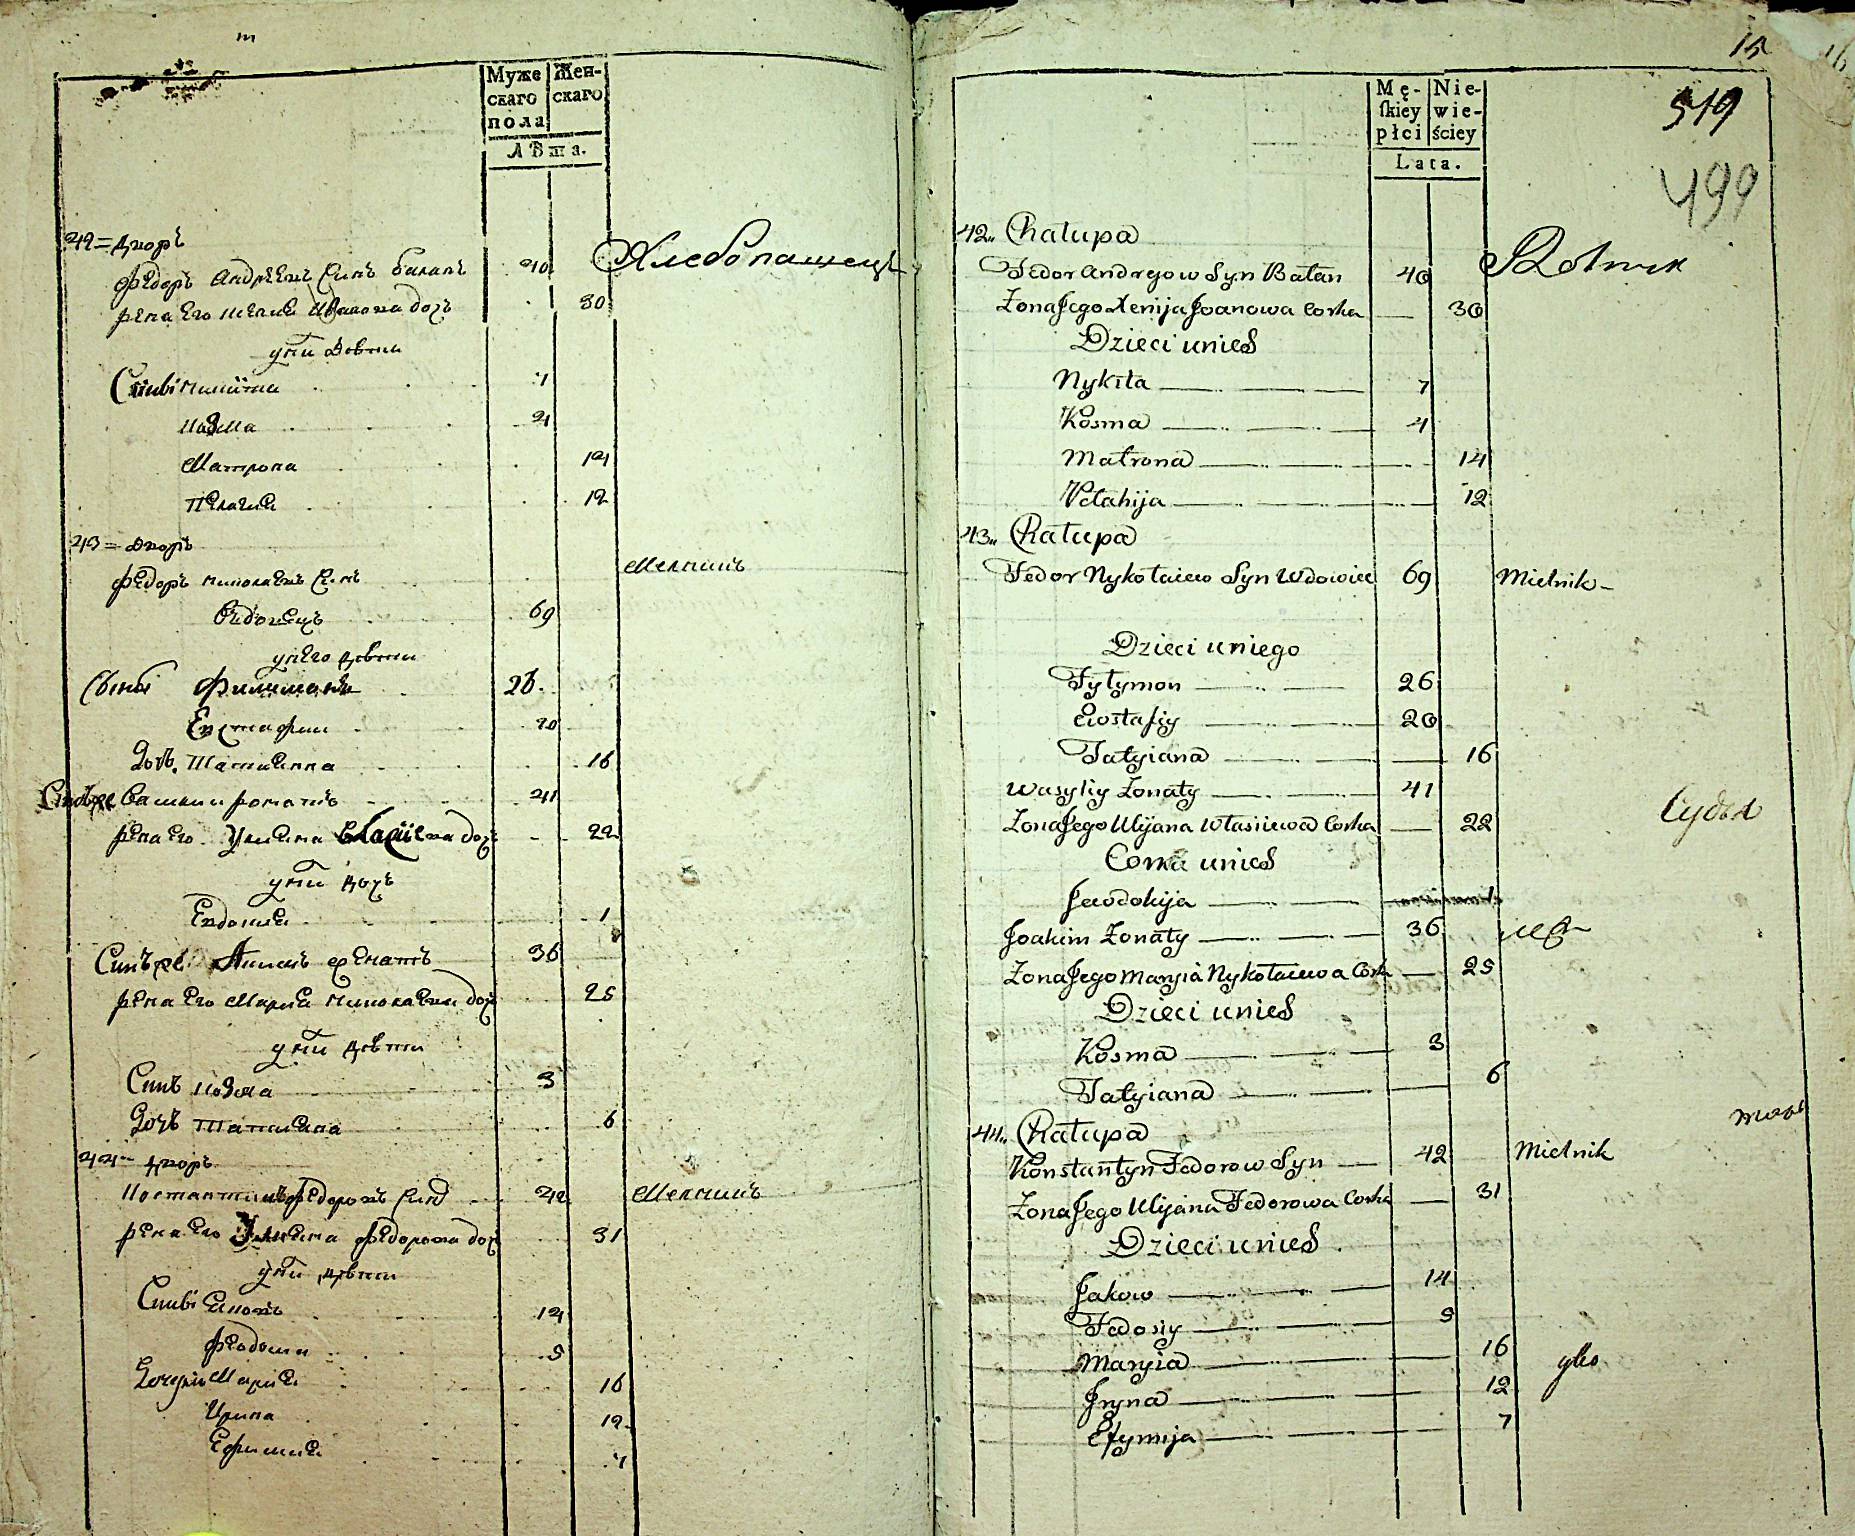 Муже
скаго
пола
Жен-
скаго
Лѣта.
42 = дворъ
Федоръ Андреевъ Синъ Баланъ 40 Хлебопашецъ
жена Его Ксения Иванова дочь 30
у них дѣти
Сини Микита 7
Козма 4
Матрона 14
Пелагия 12
43 = Дворъ
Федоръ Николаевъ Синъ Мелникъ
Вдовецъ 69
у него дѣти
Сыны Филимонъ 26
Евстафии 20
Дочь Татияна 16
Василии жонатъ 41
жена Его Улияна Власиева дочь 22
у них дочь
Евдокия 1
Акимъ жонатъ 36
жена Его Мария Николаева дочь 25
у них дѣти
Синъ Козма 3
Дочь Татияна 6
44 дворъ
Костантинъ Федоровъ Синъ 42 Мелникъ
жена Его Улияна Федорова дочь 31
у них дѣти
Сини Яковъ 14
Федосии 9
Дочери Мария 16
Ирина 12
Ефимия 7
15
16
519
499
Mę-
skiey
płci
Nie-
wie-
ściey
Lata.
42,, Chałupa
Fedor Andreyow Syn Bałan 40 Rolnik
Żona Jego Xenija Joanowa Corka 30
Dzieci unieś
Nykita 7
Kosma 4
Matrona 14
Pelahija 12
43,, Chałupa
Fedor Nykołaiew Syn Wdowiec 69 Mielnik
Dzieci uniego
Fyłymon 26
Ewstafiy 20
Tatyiana 16
Wasyliy Żonaty 41
Żona Jego Ulijana Własiiewa Corka 22
Corka unieś
Jewdokija 1
Joakim Żonaty 36
Żona Jego Maryia Nykołaiewa Cork 25
Dzieci unieś
Kosma 3
Tatyiana 6
44,, Chałupa
Konstantyn Fedorow Syn 42 Mielnik
Żona Jego Ulijana Fedorowa Corka 31
Dzieci unieś
Jakow 14
Fedosiy 9
Maryia 16
Jryna 12
Efymija 7